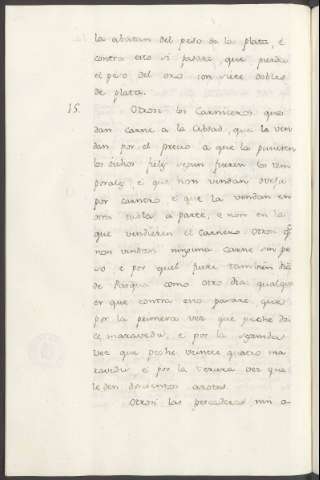 la abatan del peso de la plata, é
contra esto si pasare, que pierda
el peso del oro con siete dobles
de plata.
15. Otrosi los Carniceros que
dan carne a la Cibdad, que la ven
dan por el precio a que la pusieren
los dichos fieles segun fueren los tem
porales, e que non vendan oveja
por carnero, e que la vendan en
otra tabla á parte, e non en la
que vendieren el carnero. Otrosi q̃
non vendan ninguna carne sin pe
so e por qual fuere tambien dia
de Pasqua como otro dia qualqui
er que contra eso pasare, que
por la primera vez que peche do
ce maravedis, e por la segunda
vez que peche veinte quatro ma
ravedis, e por la tercera vez que
le den doscientos azotes.
Otrosi las pescaderas nin a